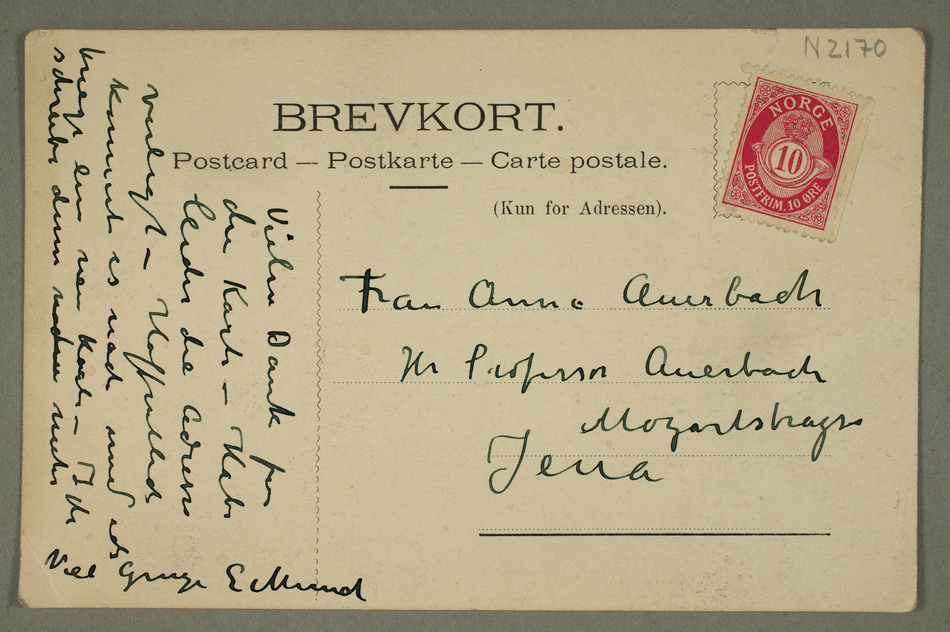 N2170
BREVKORT.
Postcard — Postkarte — Carte postale.
(Kun for Adressen).
NORGE
10
POSTFRIM. 10 ØRE
Frau Anna Auerbach
Hr Professor Auerbach
Mozartstrasse
Jena
Vielen Dank für
die Karte – Habe
leider die Adresse
verlegt –
kommt es nach und ich
kriege eine neue Karte – Ich
schreibe dann
Viel Grüsse E Munch